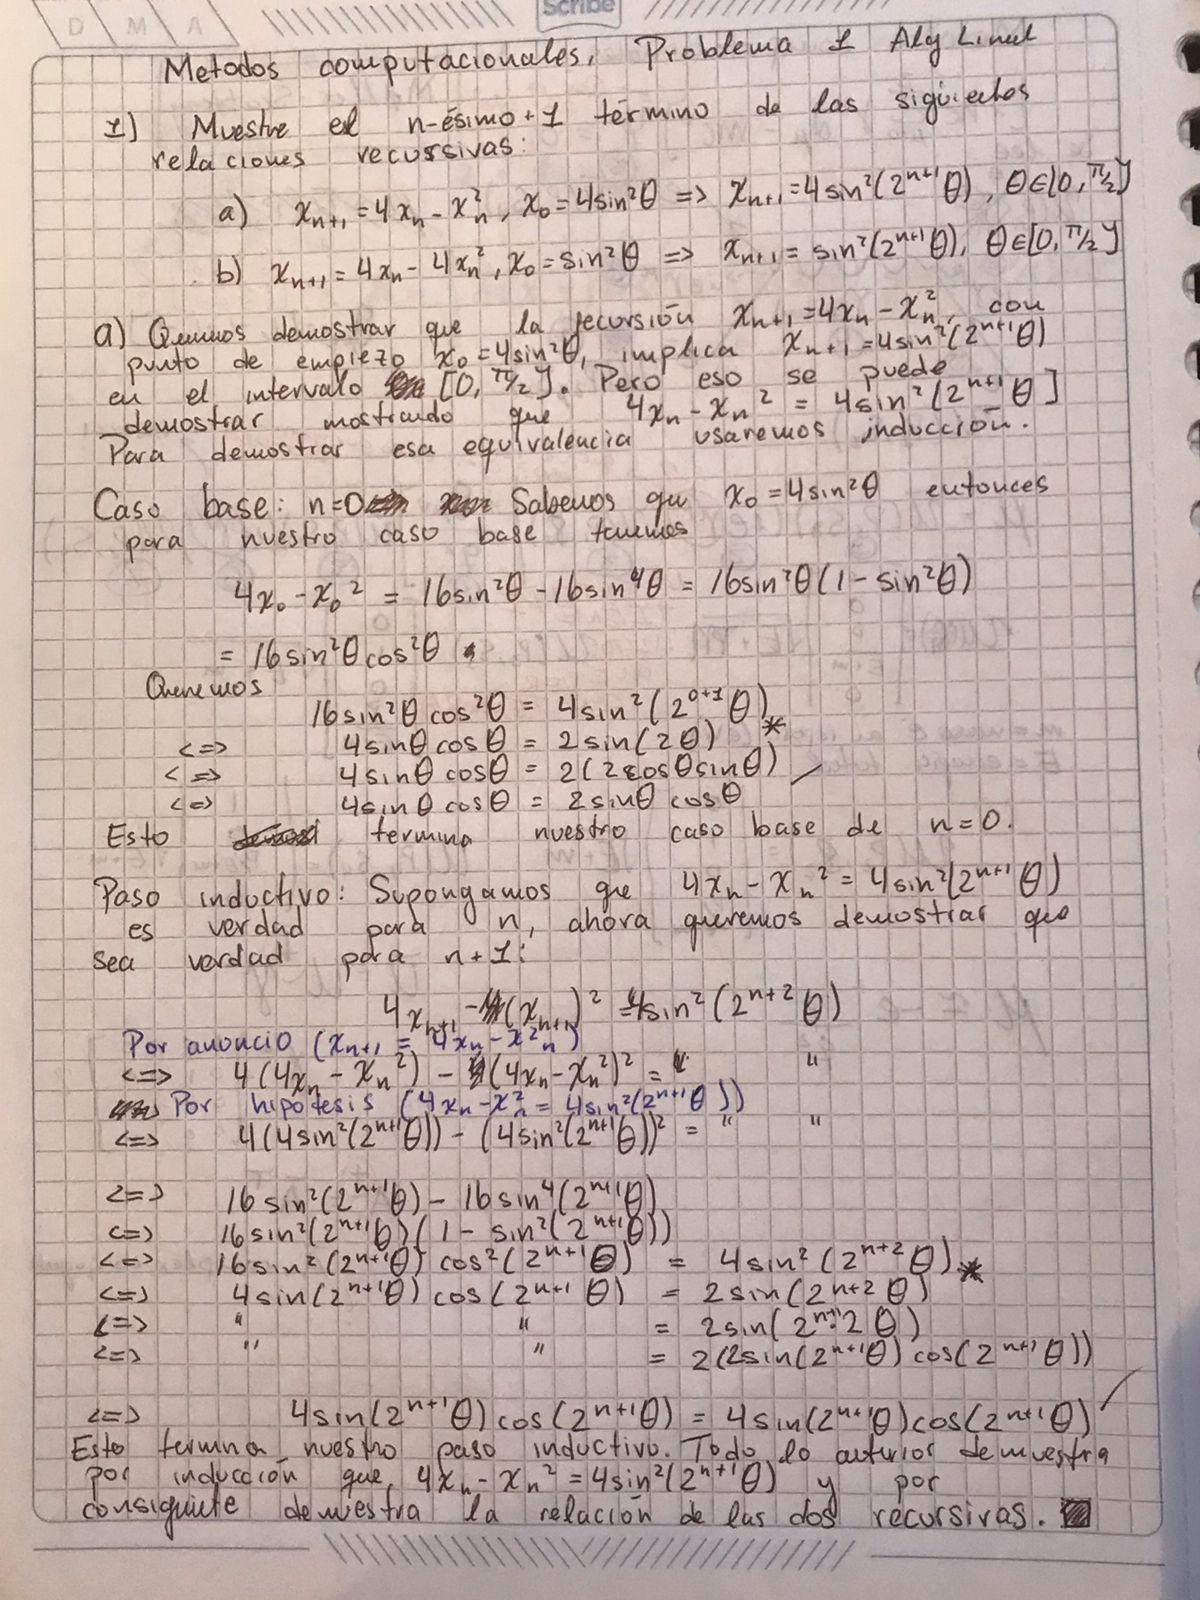 D M A
Scribe
Metodos computacionales, Problema 1 Aly Linul
1) Muestre el n-ésimo + 1 término de las siguientes
relaciones recursivas:
a) x_{n+1} = 4x_n - x_n^2, x_0 = 4sin²θ => x_{n+1} = 4sin²(2^{n+1}θ), θ∈[0, π/2]
b) x_{n+1} = 4x_n - 4x_n^2, x_0 = sin²θ => x_{n+1} = sin²(2^{n+1}θ), θ∈[0, π/2]
a) Queremos demostrar que la recursión x_{n+1} = 4x_n - x_n^2, con
punto de empiezo x_0 = 4sin²θ, implica x_{n+1} = 4sin²(2^{n+1}θ)
en el intervalo [0, π/2]. Pero eso se puede
demostrar mostrando que 4x_n - x_n^2 = 4sin²(2^{n+1}θ]
Para demostrar esa equivalencia usaremos inducción.
Caso base: n=0 Sabemos que x_0 = 4sin²θ entonces
para nuestro caso base tenemos
4x_0 - x_0^2 = 16sin²θ - 16sin⁴θ = 16sin²θ(1 - sin²θ)
= 16sin²θcos²θ
Queremos
16sin²θcos²θ = 4sin²(2^{0+1}θ) *
<=> 4sinθcosθ = 2sin(2θ)
<=> 4sinθcosθ = 2(2cosθsinθ) ✓
<=> 4sinθcosθ = 2sinθcosθ
Esto termina nuestro caso base de n=0.
Paso inductivo: Supongamos que 4x_n - x_n^2 = 4sin²(2^{n+1}θ)
es verdad para n, ahora queremos demostrar que
sea verdad para n+1:
4x_{n+1} - (x_{n+1})² = 4sin²(2^{n+2}θ)
Por anuncio (x_{n+1} = 4x_n - x_n^2)
<=> 4(4x_n - x_n^2) - (4x_n - x_n^2)² = " "
Por hipótesis (4x_n - x_n^2 = 4sin²(2^{n+1}θ))
<=> 4(4sin²(2^{n+1}θ)) - (4sin²(2^{n+1}θ))² = " "
<=> 16sin²(2^{n+1}θ) - 16sin⁴(2^{n+1}θ)
<=> 16sin²(2^{n+1}θ)(1 - sin²(2^{n+1}θ))
<=> 16sin²(2^{n+1}θ)cos²(2^{n+1}θ) = 4sin²(2^{n+2}θ) *
<=> 4sin(2^{n+1}θ)cos(2^{n+1}θ) = 2sin(2^{n+2}θ)
<=> " " = 2sin(2^{n+1}·2θ)
<=> " " = 2(2sin(2^{n+1}θ)cos(2^{n+1}θ))
<=> 4sin(2^{n+1}θ)cos(2^{n+1}θ) = 4sin(2^{n+1}θ)cos(2^{n+1}θ) ✓
Esto termina nuestro paso inductivo. Todo lo anterior demuestra
por inducción que 4x_n - x_n^2 = 4sin²(2^{n+1}θ) y por
consiguiente demuestra la relación de las dos recursivas.